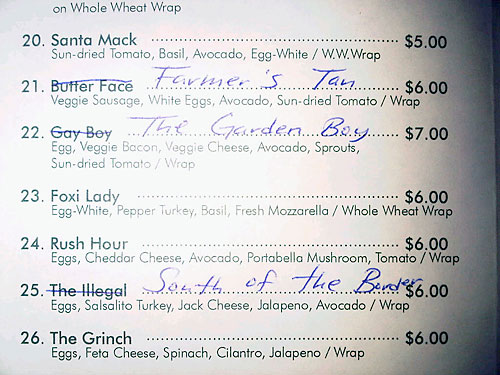 on Whole Wheat Wrap
20. Santa Mack ........ $5.00
Sun-dried Tomato, Basil, Avocado, Egg-White / W.W.Wrap
21. Butter Face Farmer's Tan ........ $6.00
Veggie Sausage, White Eggs, Avocado, Sun-dried Tomato / Wrap
22. Gay Boy The Garden Boy ........ $7.00
Egg/ Veggie Bacon, Veggie Cheese, Avocado, Sprouts,
Sun-dried Tomato / Wrap
23. Foxi Lady ........ $6.00
Egg-White, Pepper Turkey, Basil, Fresh Mozzarella / Whole Wheat Wrap
24. Rush Hour ........ $6.00
Eggs, Cheddar Cheese, Avocado, Portabella Mushroom, Tomato / Wrap
25. The Illegal South of the Border ........ $6.00
Eggs, Salsalito Turkey, Jack Cheese, Jalapeno, Avocado / Wrap
26. The Grinch ........ $6.00
Eggs, Feta Cheese, Spinach, Cilantro, Jalapeno / Wrap